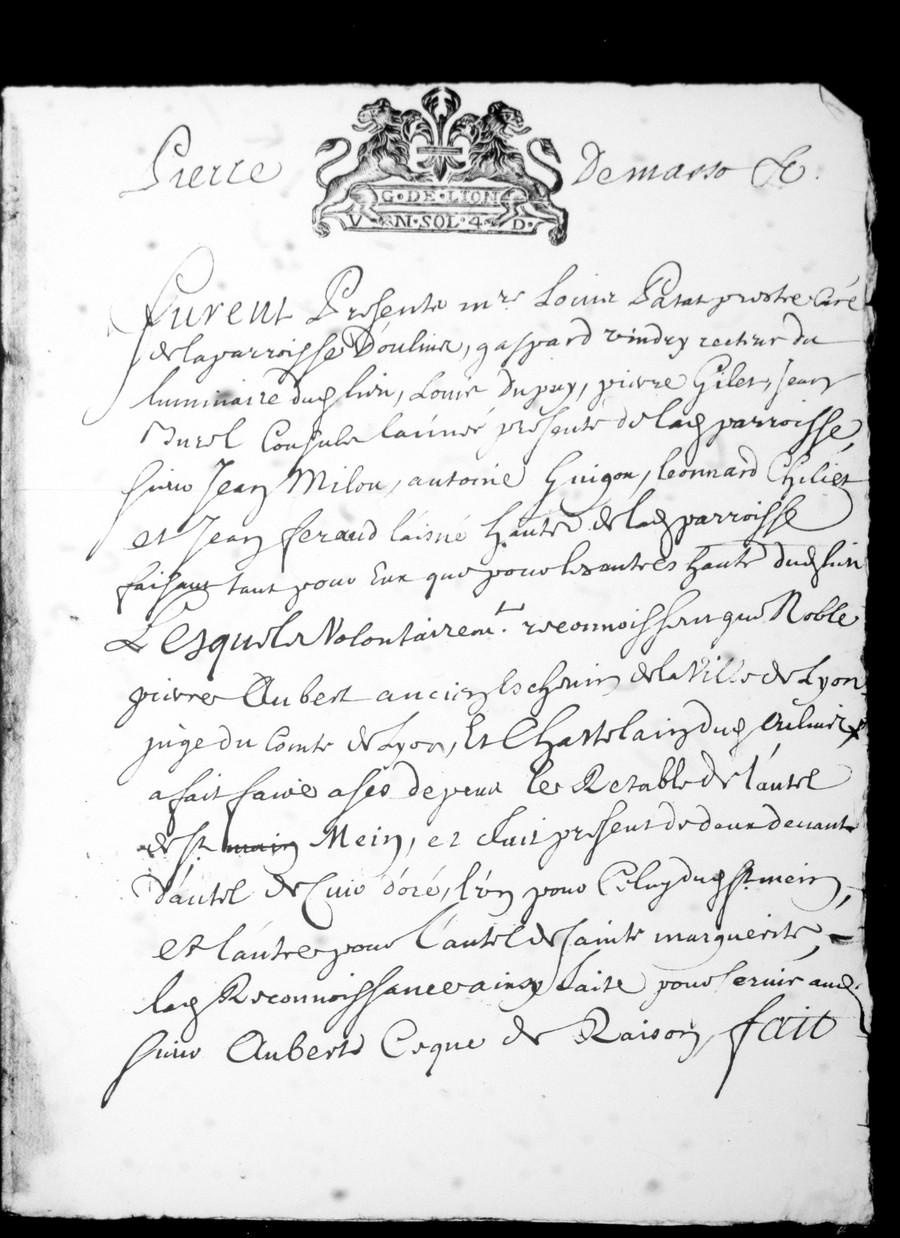 Pierre Demasso &c.
G·DE·LION
VN·SOL·4·D·
furent Presents mre Louis Patat prestre Curé
de la parroisse Doulins, gaspard vindry recteur du
luminaire dud lieu, Louis Dupuy, pierre Gilet, Jean
Burel Consuls l'année présente de lad parroisse,
sieurs Jean Milou, antoine Guigou, leonnard Chiliet
et Jean feraud l'aisné hants de lad parroisse
faisant tant pour Eux que pour les autres hants dud lieu
Lesquels Volontairemt. reconnoissent que Noble
pierre Aubert ancien Eschevin de la Ville de Lyon
juge du Comté de Lyon, Et Chastelain dud
a fait faire a ses depens le Retable de l'autel
de st main Mein, et fait present de deux devant
d'autel de Cuir d'oré, l'un pour Celuy dud st mein,
et l'autre pour l'autel de sainte marguerite,
lad Reconnoissance ainsy faite pour servir aud
sieur Aubert Ce que de Raison, fait